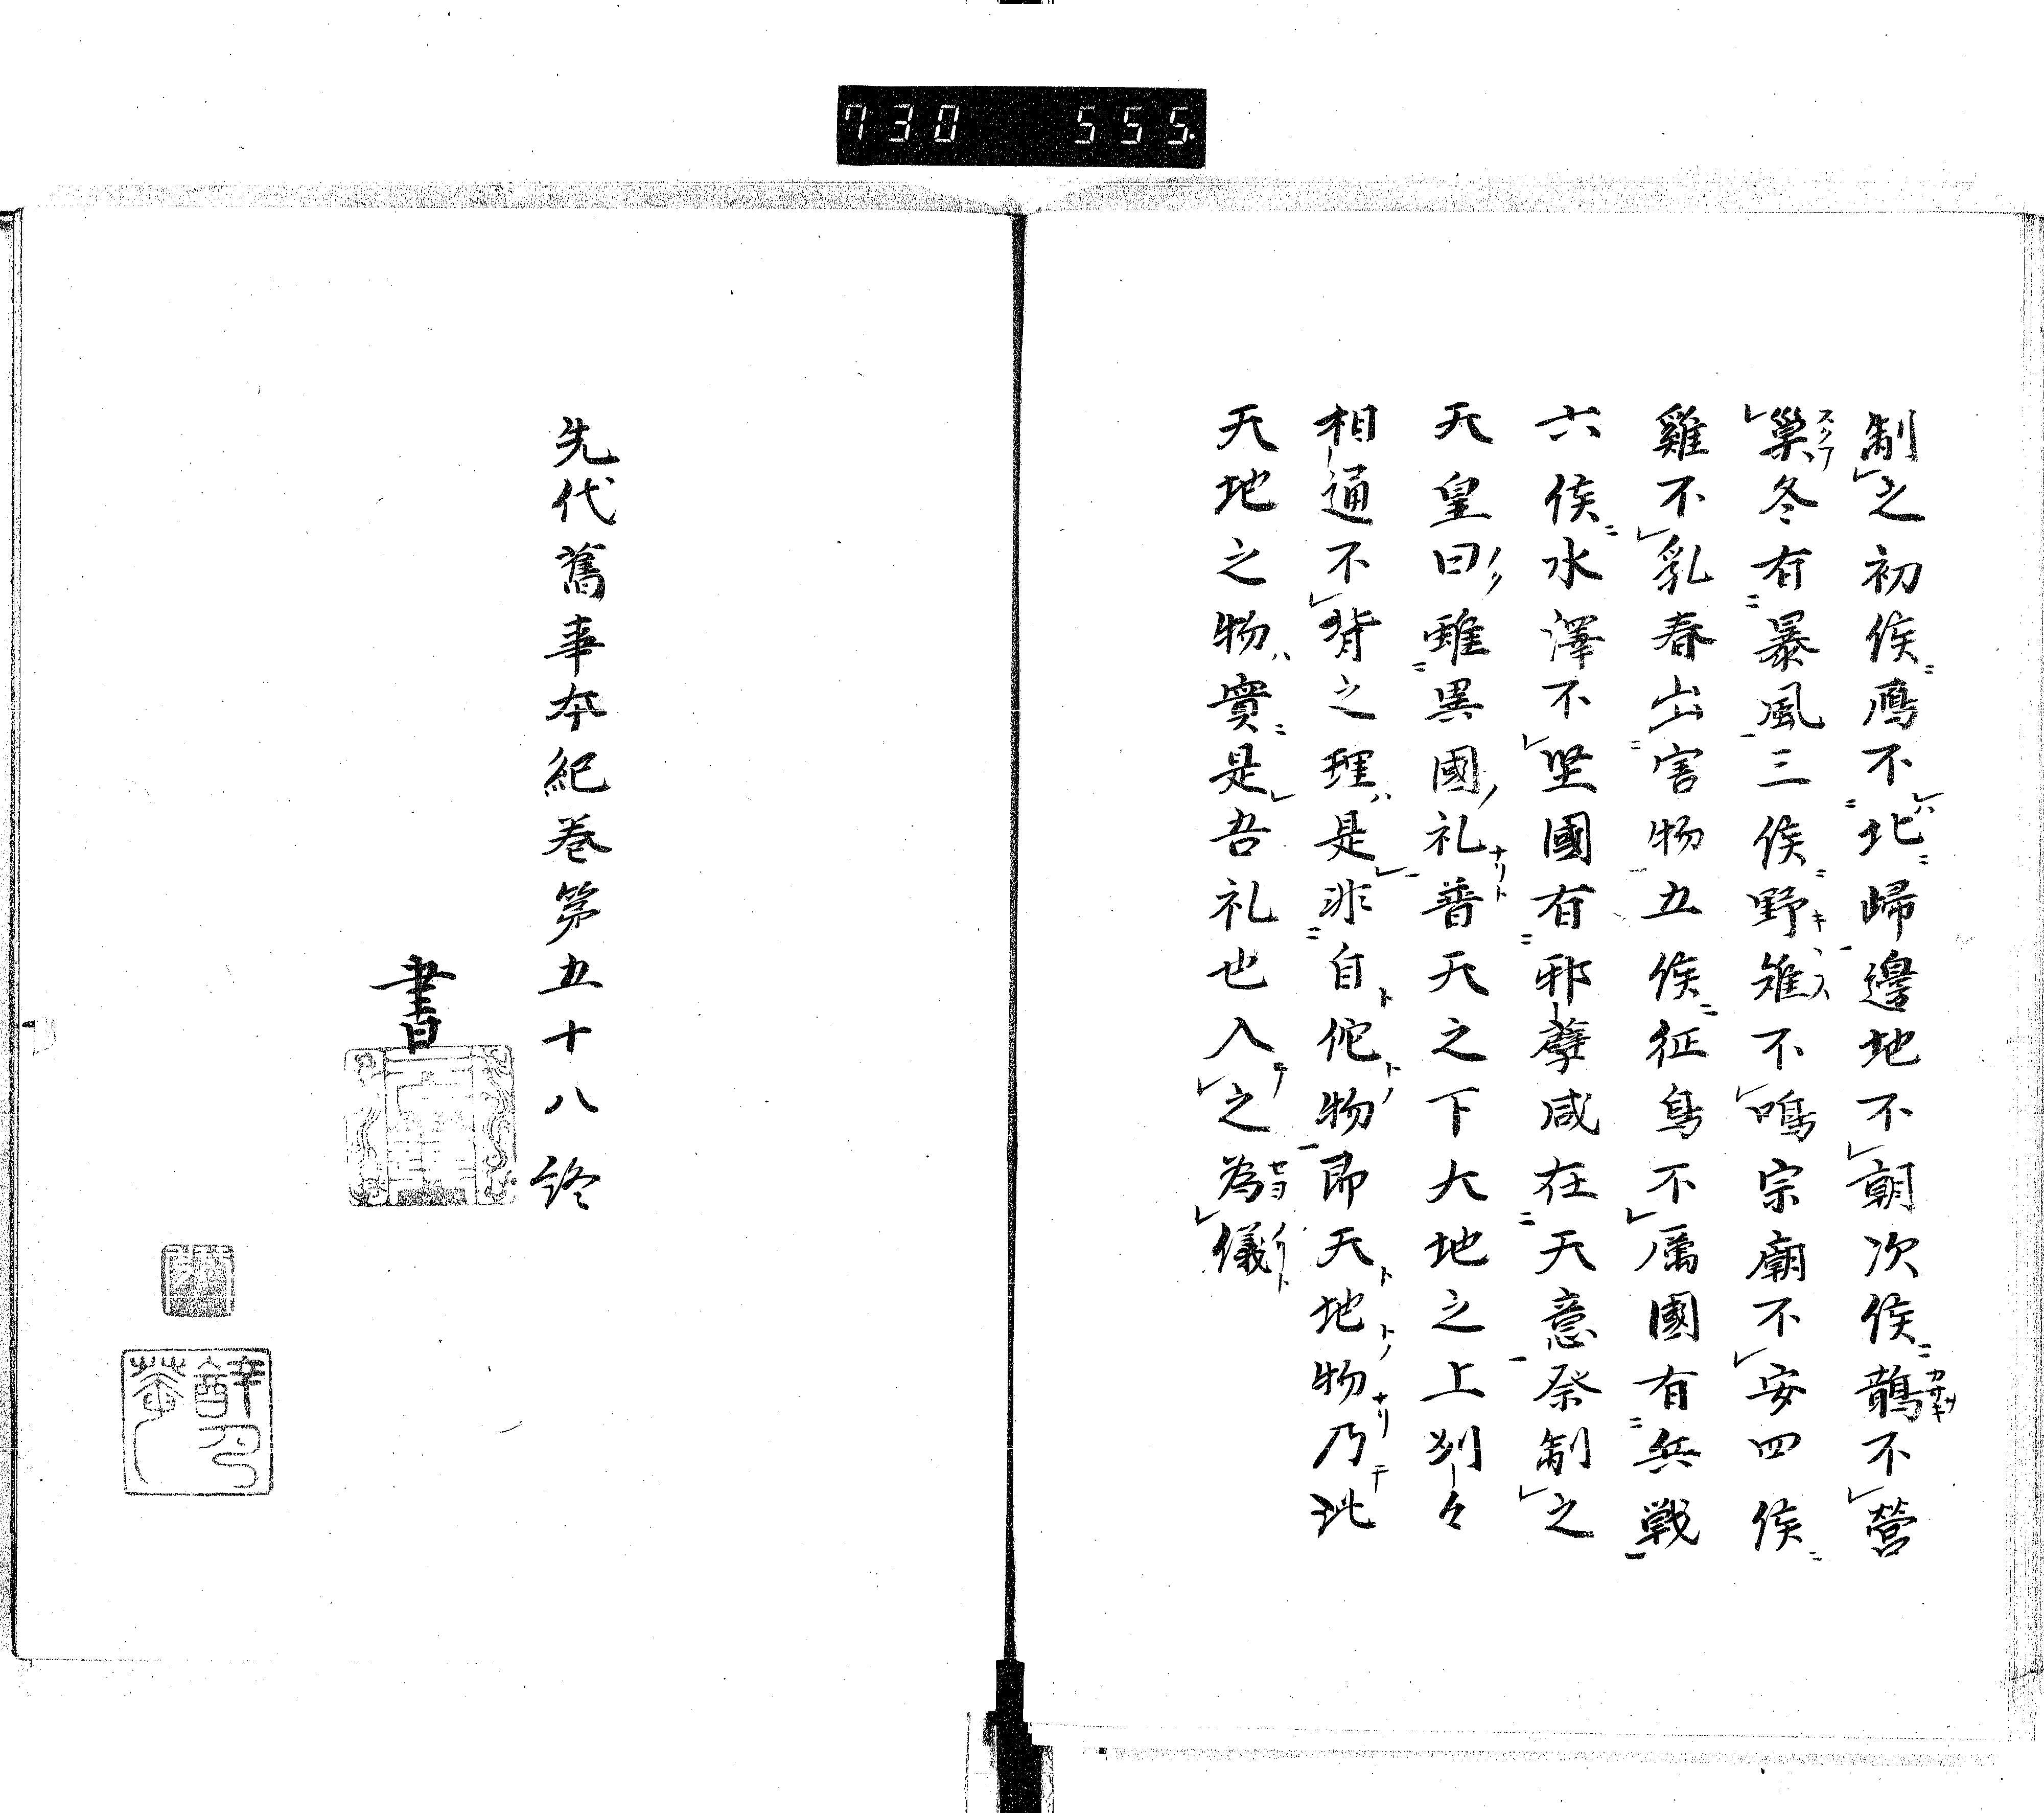 730 555
制之初候鳫不北歸邊地不朝次候鵲不営
巣冬有暴風三候野雉不鳴宗廟不安四候
雞不乳春出害物五候征鳥不厲國有兵戦
六候水澤不堅國有邪孽咸在天意祭制之
天皇曰雖異國礼普天之下大地之上別々
相通不背之理是非自佗物即天地物乃此
天地之物實是吾礼也入之為儀
先代舊事本紀巻第五十八終
書